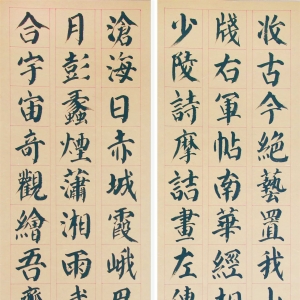 滄海日赤城霞峨眉
月彭蠡煙瀟湘雨武
合宇宙奇觀繪吾齋
少陵詩摩詰畫左傳
牋右軍帖南華經相
收古今絕藝置我山